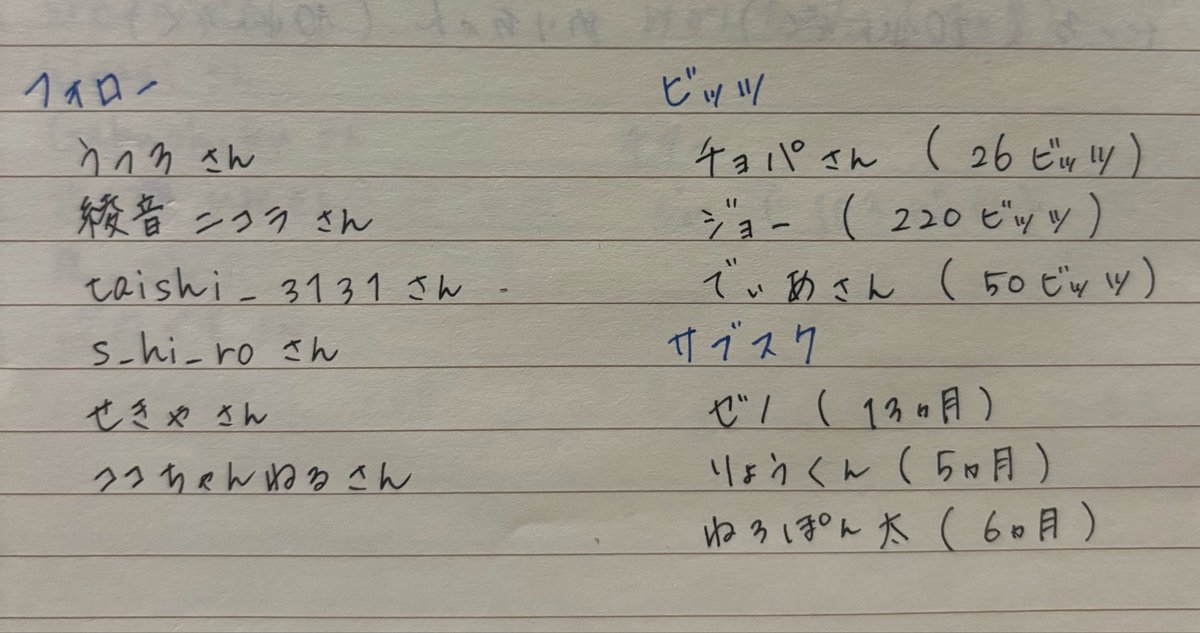 フォロー
うつろさん
綾音ニコラさん
taishi_3131さん
s_hi_roさん
せきやさん
ココちゃんねるさん
ビッツ
チョパさん (26ビッツ)
ジョー (220ビッツ)
でぃあさん (50ビッツ)
サブスク
ゼノ (13ヵ月)
りょうくん (5ヵ月)
ねろぽん太 (6ヵ月)